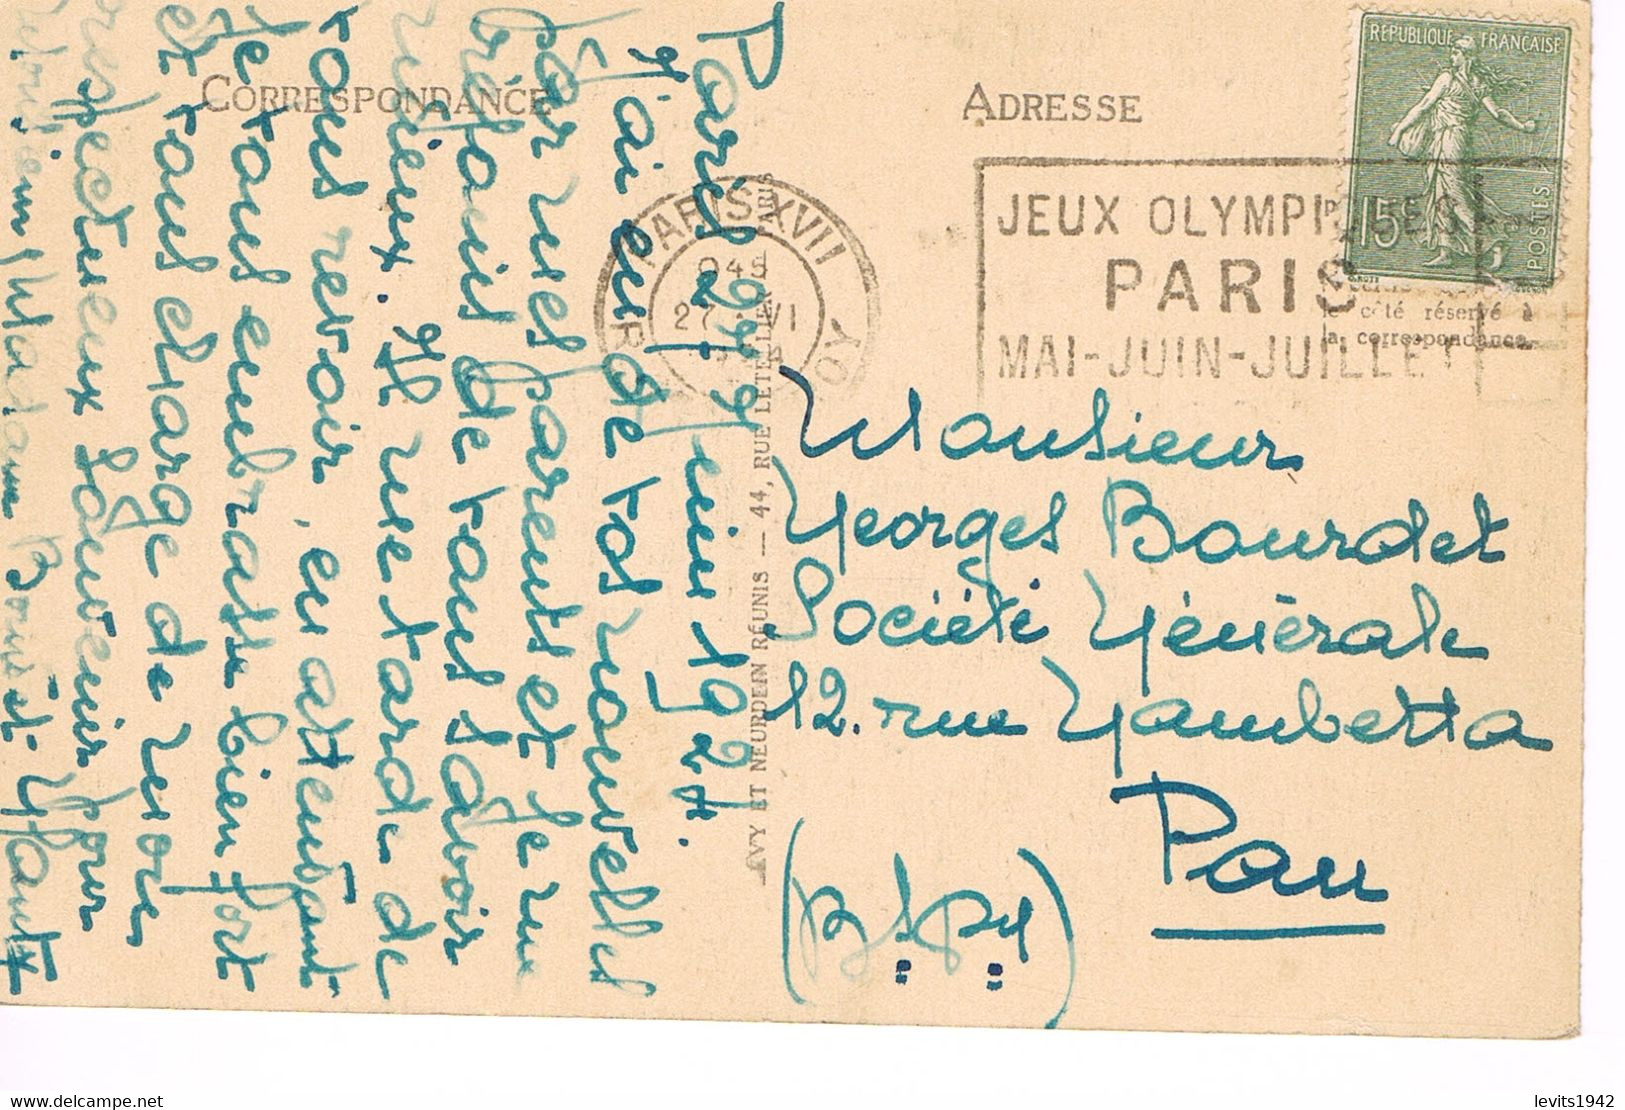 CORRESPONDANCE
Paris 27 Juin 1924.
J'ai eu de tes nouvelles
par mes parents et je me
réjouis de vous savoir
mieux. Il me tarde de
vous revoir, en attendant
je vous embrasse bien fort
et vous charge de mes
respectueux souvenirs pour
Monsieur, Madame
LEVY ET NEURDEIN RÉUNIS — 44, RUE LETELLIER, PARIS
ADRESSE
RÉPUBLIQUE FRANÇAISE
15
POSTES
PARIS XVII
27 VI
JEUX OLYMPIQUES
PARIS
MAI-JUIN-JUILLET
le côté réservé à
la correspondance
Monsieur
Georges Bourdet
Société Générale
12. rue Gambetta
Pau
(B.ses Pyr.)
levits1942